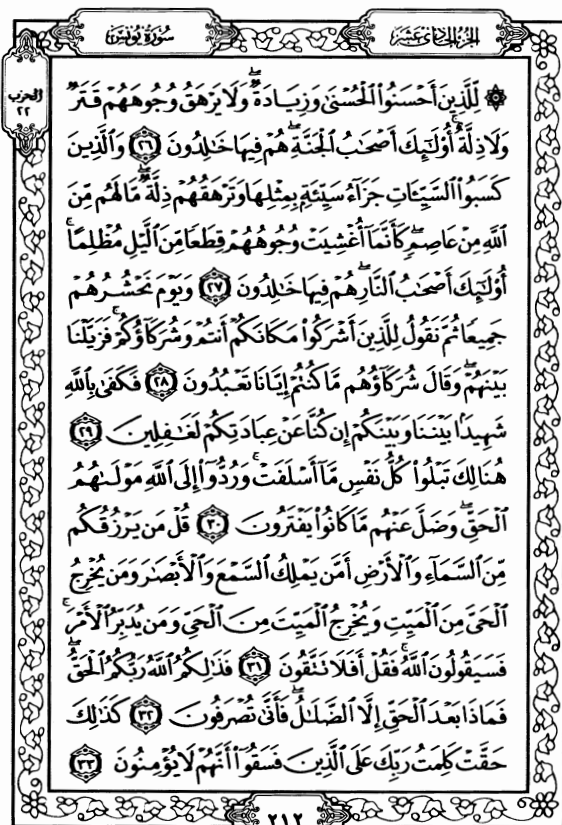 سُورَةُ يُونُسَ
الجُزْءُ الحَادِيَ عَشَرَ
الحِزْب
٢٢
۞ لِّلَّذِينَ أَحْسَنُوا۟ ٱلْحُسْنَىٰ وَزِيَادَةٌ ۖ وَلَا يَرْهَقُ وُجُوهَهُمْ قَتَرٌ
وَلَا ذِلَّةٌ ۚ أُو۟لَـٰٓئِكَ أَصْحَـٰبُ ٱلْجَنَّةِ ۖ هُمْ فِيهَا خَـٰلِدُونَ ٢٦ وَٱلَّذِينَ
كَسَبُوا۟ ٱلسَّيِّـَٔاتِ جَزَآءُ سَيِّئَةٍۭ بِمِثْلِهَا وَتَرْهَقُهُمْ ذِلَّةٌ ۖ مَّا لَهُم مِّنَ
ٱللَّهِ مِنْ عَاصِمٍ ۖ كَأَنَّمَآ أُغْشِيَتْ وُجُوهُهُمْ قِطَعًا مِّنَ ٱلَّيْلِ مُظْلِمًا ۚ
أُو۟لَـٰٓئِكَ أَصْحَـٰبُ ٱلنَّارِ ۖ هُمْ فِيهَا خَـٰلِدُونَ ٢٧ وَيَوْمَ نَحْشُرُهُمْ
جَمِيعًا ثُمَّ نَقُولُ لِلَّذِينَ أَشْرَكُوا۟ مَكَانَكُمْ أَنتُمْ وَشُرَكَآؤُكُمْ ۚ فَزَيَّلْنَا
بَيْنَهُمْ ۖ وَقَالَ شُرَكَآؤُهُم مَّا كُنتُمْ إِيَّانَا تَعْبُدُونَ ٢٨ فَكَفَىٰ بِٱللَّهِ
شَهِيدًۢا بَيْنَنَا وَبَيْنَكُمْ إِن كُنَّا عَنْ عِبَادَتِكُمْ لَغَـٰفِلِينَ ٢٩
هُنَالِكَ تَبْلُوا۟ كُلُّ نَفْسٍ مَّآ أَسْلَفَتْ ۚ وَرُدُّوٓا۟ إِلَى ٱللَّهِ مَوْلَىٰهُمُ
ٱلْحَقِّ ۖ وَضَلَّ عَنْهُم مَّا كَانُوا۟ يَفْتَرُونَ ٣٠ قُلْ مَن يَرْزُقُكُم
مِّنَ ٱلسَّمَآءِ وَٱلْأَرْضِ أَمَّن يَمْلِكُ ٱلسَّمْعَ وَٱلْأَبْصَـٰرَ وَمَن يُخْرِجُ
ٱلْحَىَّ مِنَ ٱلْمَيِّتِ وَيُخْرِجُ ٱلْمَيِّتَ مِنَ ٱلْحَىِّ وَمَن يُدَبِّرُ ٱلْأَمْرَ ۚ
فَسَيَقُولُونَ ٱللَّهُ ۚ فَقُلْ أَفَلَا تَتَّقُونَ ٣١ فَذَٰلِكُمُ ٱللَّهُ رَبُّكُمُ ٱلْحَقُّ ۖ
فَمَاذَا بَعْدَ ٱلْحَقِّ إِلَّا ٱلضَّلَـٰلُ ۖ فَأَنَّىٰ تُصْرَفُونَ ٣٢ كَذَٰلِكَ
حَقَّتْ كَلِمَتُ رَبِّكَ عَلَى ٱلَّذِينَ فَسَقُوٓا۟ أَنَّهُمْ لَا يُؤْمِنُونَ ٣٣
٢١٢